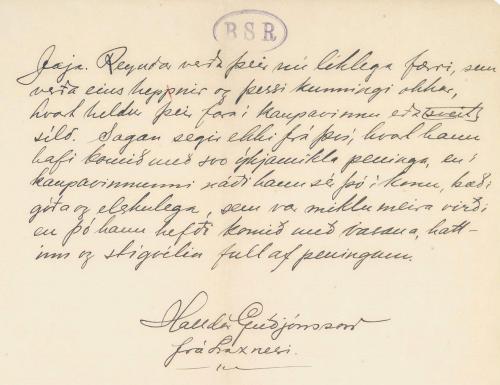 BSR
Jæja. Reyndar verða þeir nú líklega færri, sem
verða eins heppnir og þessi kunningi okkar,
hvort heldur þeir fara í kaupavinnu eða
síld. Sagan segir ekki frá því, hvort hann
hafi komið með svo ýkjamikla peninga, en í
kaupavinnunni náði hann sér þó í konu, bæði
góða og elskulega, sem var miklu meira virði
en þó hann hefði komið með vasana, hatt-
inn og stígvélin full af peningum.
Halldór Guðjónsson
frá Laxnesi.